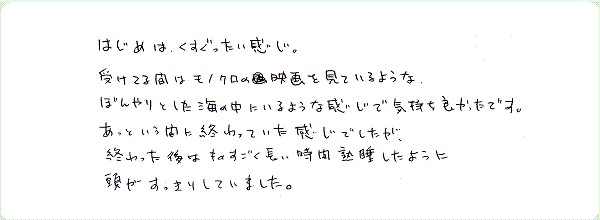 はじめは、くすぐったい感じ。
受けてる間はモノクロの映画を見ているような、
ぼんやりとした海の中にいるような感じで気持ち良かったです。
あっという間に終わっていた感じでしたが、
終わった後はものすごく長い時間熟睡したように
頭がすっきりしていました。